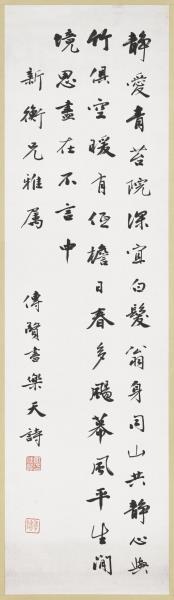 靜愛青苔院深宜白髮翁身同山共靜心與
竹俱空暖有低檐日春多颺幕風平生閒
境思盡在不言中
新衡兄雅屬
傳賢書樂天詩